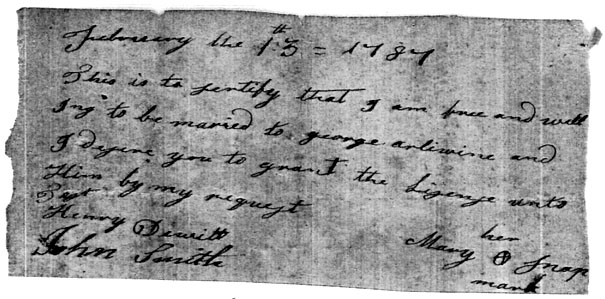 February the 13th = 1787
This is to sertify that I am free and will
Ing to be maried to george anliwine and
I dezire you to grant the lizense unto
Him by my requezt
Test
Henry Dewitt
John Smith
her
Mary O Snap
mark